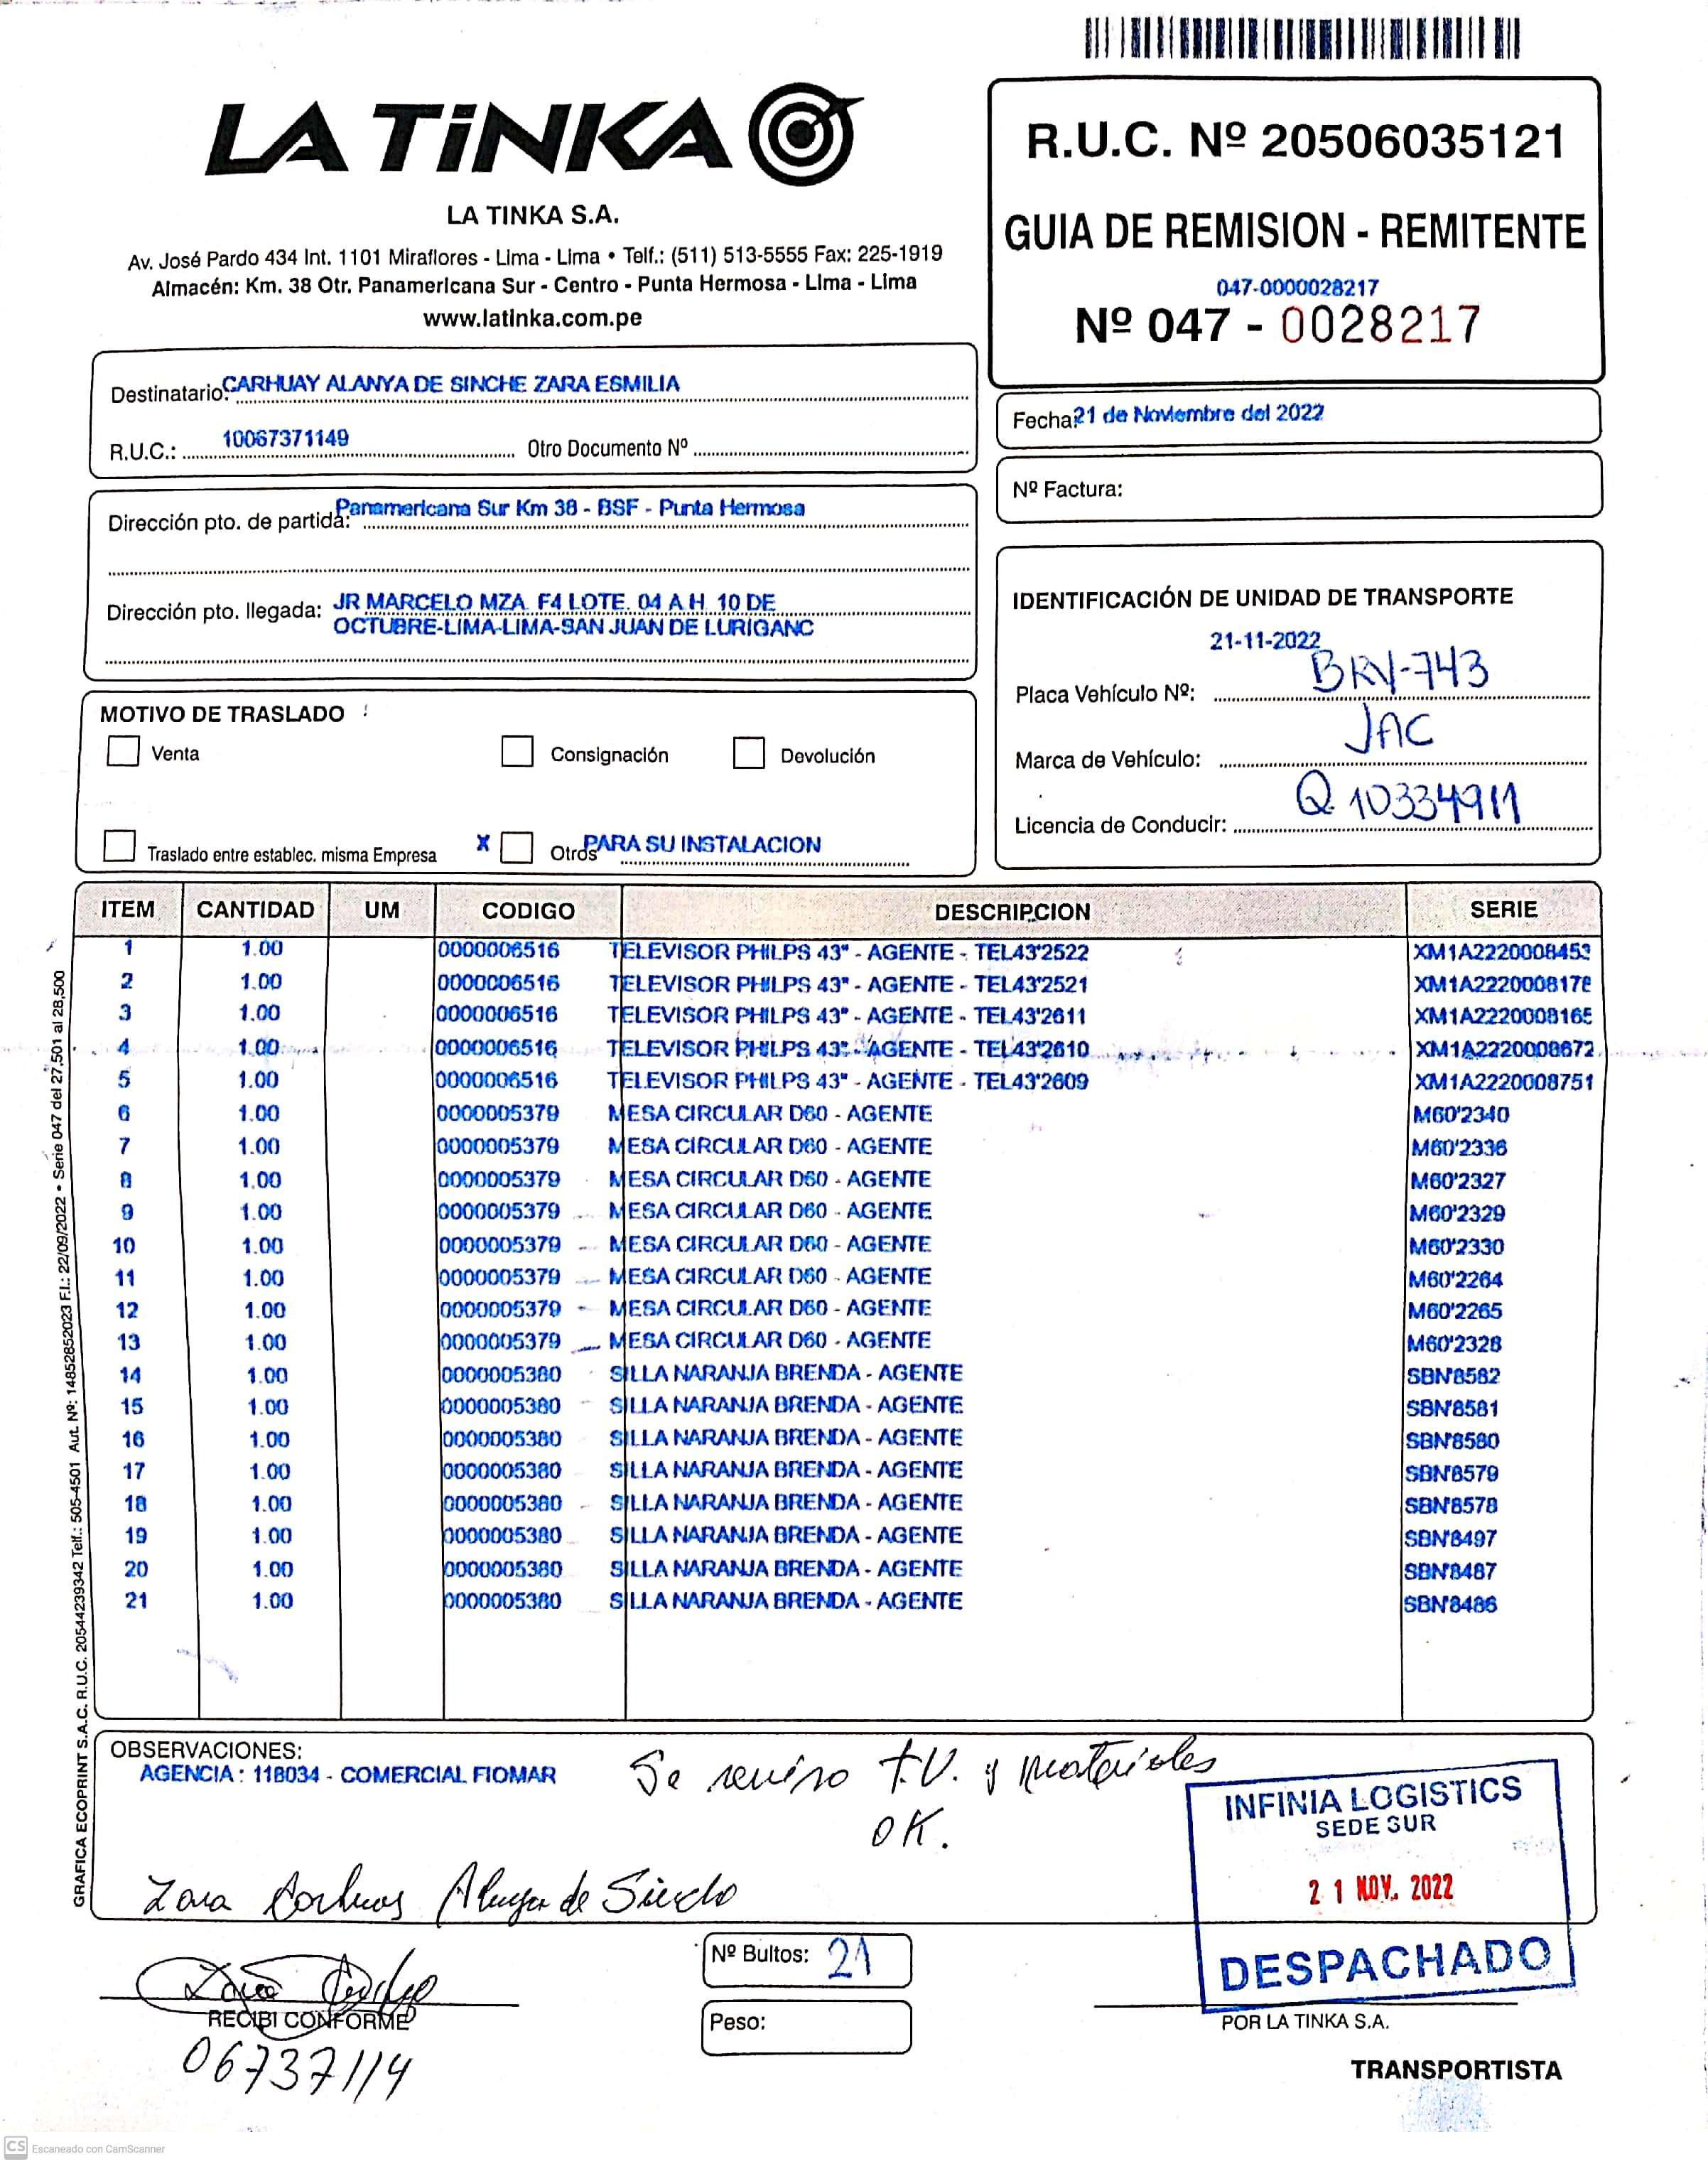 LA TiNKA
LA TINKA S.A.
Av. José Pardo 434 Int. 1101 Miraflores - Lima - Lima • Telf.: (511) 513-5555 Fax: 225-1919
Almacén: Km. 38 Otr. Panamericana Sur - Centro - Punta Hermosa - Lima - Lima
www.latinka.com.pe
R.U.C. Nº 20506035121
GUIA DE REMISION - REMITENTE
047-0000028217
Nº 047 - 0028217
Destinatario: CARHUAY ALANYA DE SINCHE ZARA ESMILIA
R.U.C.: 10067371149 Otro Documento Nº
Fecha: 21 de Noviembre del 2022
Nº Factura:
Dirección pto. de partida: Panamericana Sur Km 38 - BSF - Punta Hermosa
Dirección pto. llegada: JR MARCELO MZA. F4 LOTE. 04 A.H. 10 DE
OCTUBRE-LIMA-LIMA-SAN JUAN DE LURIGANC
IDENTIFICACIÓN DE UNIDAD DE TRANSPORTE
21-11-2022
Placa Vehículo Nº: BRV-743
Marca de Vehículo: JAC
Licencia de Conducir: Q 10334911
MOTIVO DE TRASLADO
Venta Consignación Devolución
Traslado entre establec. misma Empresa X Otros PARA SU INSTALACION
ITEM CANTIDAD UM CODIGO DESCRIPCION SERIE
1 1.00 0000006516 TELEVISOR PHILPS 43" - AGENTE - TEL43'2522 XM1A2220008453
2 1.00 0000006516 TELEVISOR PHILPS 43" - AGENTE - TEL43'2521 XM1A2220008178
3 1.00 0000006516 TELEVISOR PHILPS 43" - AGENTE - TEL43'2611 XM1A2220008165
4 1.00 0000006516 TELEVISOR PHILPS 43" - AGENTE - TEL43'2610 XM1A2220008672
5 1.00 0000006516 TELEVISOR PHILPS 43" - AGENTE - TEL43'2609 XM1A2220008751
6 1.00 0000005379 MESA CIRCULAR D60 - AGENTE M60'2340
7 1.00 0000005379 MESA CIRCULAR D60 - AGENTE M60'2336
8 1.00 0000005379 MESA CIRCULAR D60 - AGENTE M60'2327
9 1.00 0000005379 MESA CIRCULAR D60 - AGENTE M60'2329
10 1.00 0000005379 MESA CIRCULAR D60 - AGENTE M60'2330
11 1.00 0000005379 MESA CIRCULAR D60 - AGENTE M60'2264
12 1.00 0000005379 MESA CIRCULAR D60 - AGENTE M60'2265
13 1.00 0000005379 MESA CIRCULAR D60 - AGENTE M60'2328
14 1.00 0000005380 SILLA NARANJA BRENDA - AGENTE SBN'8582
15 1.00 0000005380 SILLA NARANJA BRENDA - AGENTE SBN'8581
16 1.00 0000005380 SILLA NARANJA BRENDA - AGENTE SBN'8580
17 1.00 0000005380 SILLA NARANJA BRENDA - AGENTE SBN'8579
18 1.00 0000005380 SILLA NARANJA BRENDA - AGENTE SBN'8578
19 1.00 0000005380 SILLA NARANJA BRENDA - AGENTE SBN'8497
20 1.00 0000005380 SILLA NARANJA BRENDA - AGENTE SBN'8487
21 1.00 0000005380 SILLA NARANJA BRENDA - AGENTE SBN'8486
GRAFICA ECOPRINT S.A.C. R.U.C. 20544239342 Telf.: 505-4501 Aut. Nº: 14852852023 F.I.: 22/09/2022 • Serie 047 del 27,501 al 28,500
OBSERVACIONES:
AGENCIA : 118034 - COMERCIAL FIOMAR
Se reviso T.V. y materiales
OK.
INFINIA LOGISTICS
SEDE SUR
21 NOV. 2022
DESPACHADO
Zara
de
Nº Bultos: 21
Peso:
RECIBI CONFORME
06737114
POR LA TINKA S.A.
TRANSPORTISTA
CS Escaneado con CamScanner